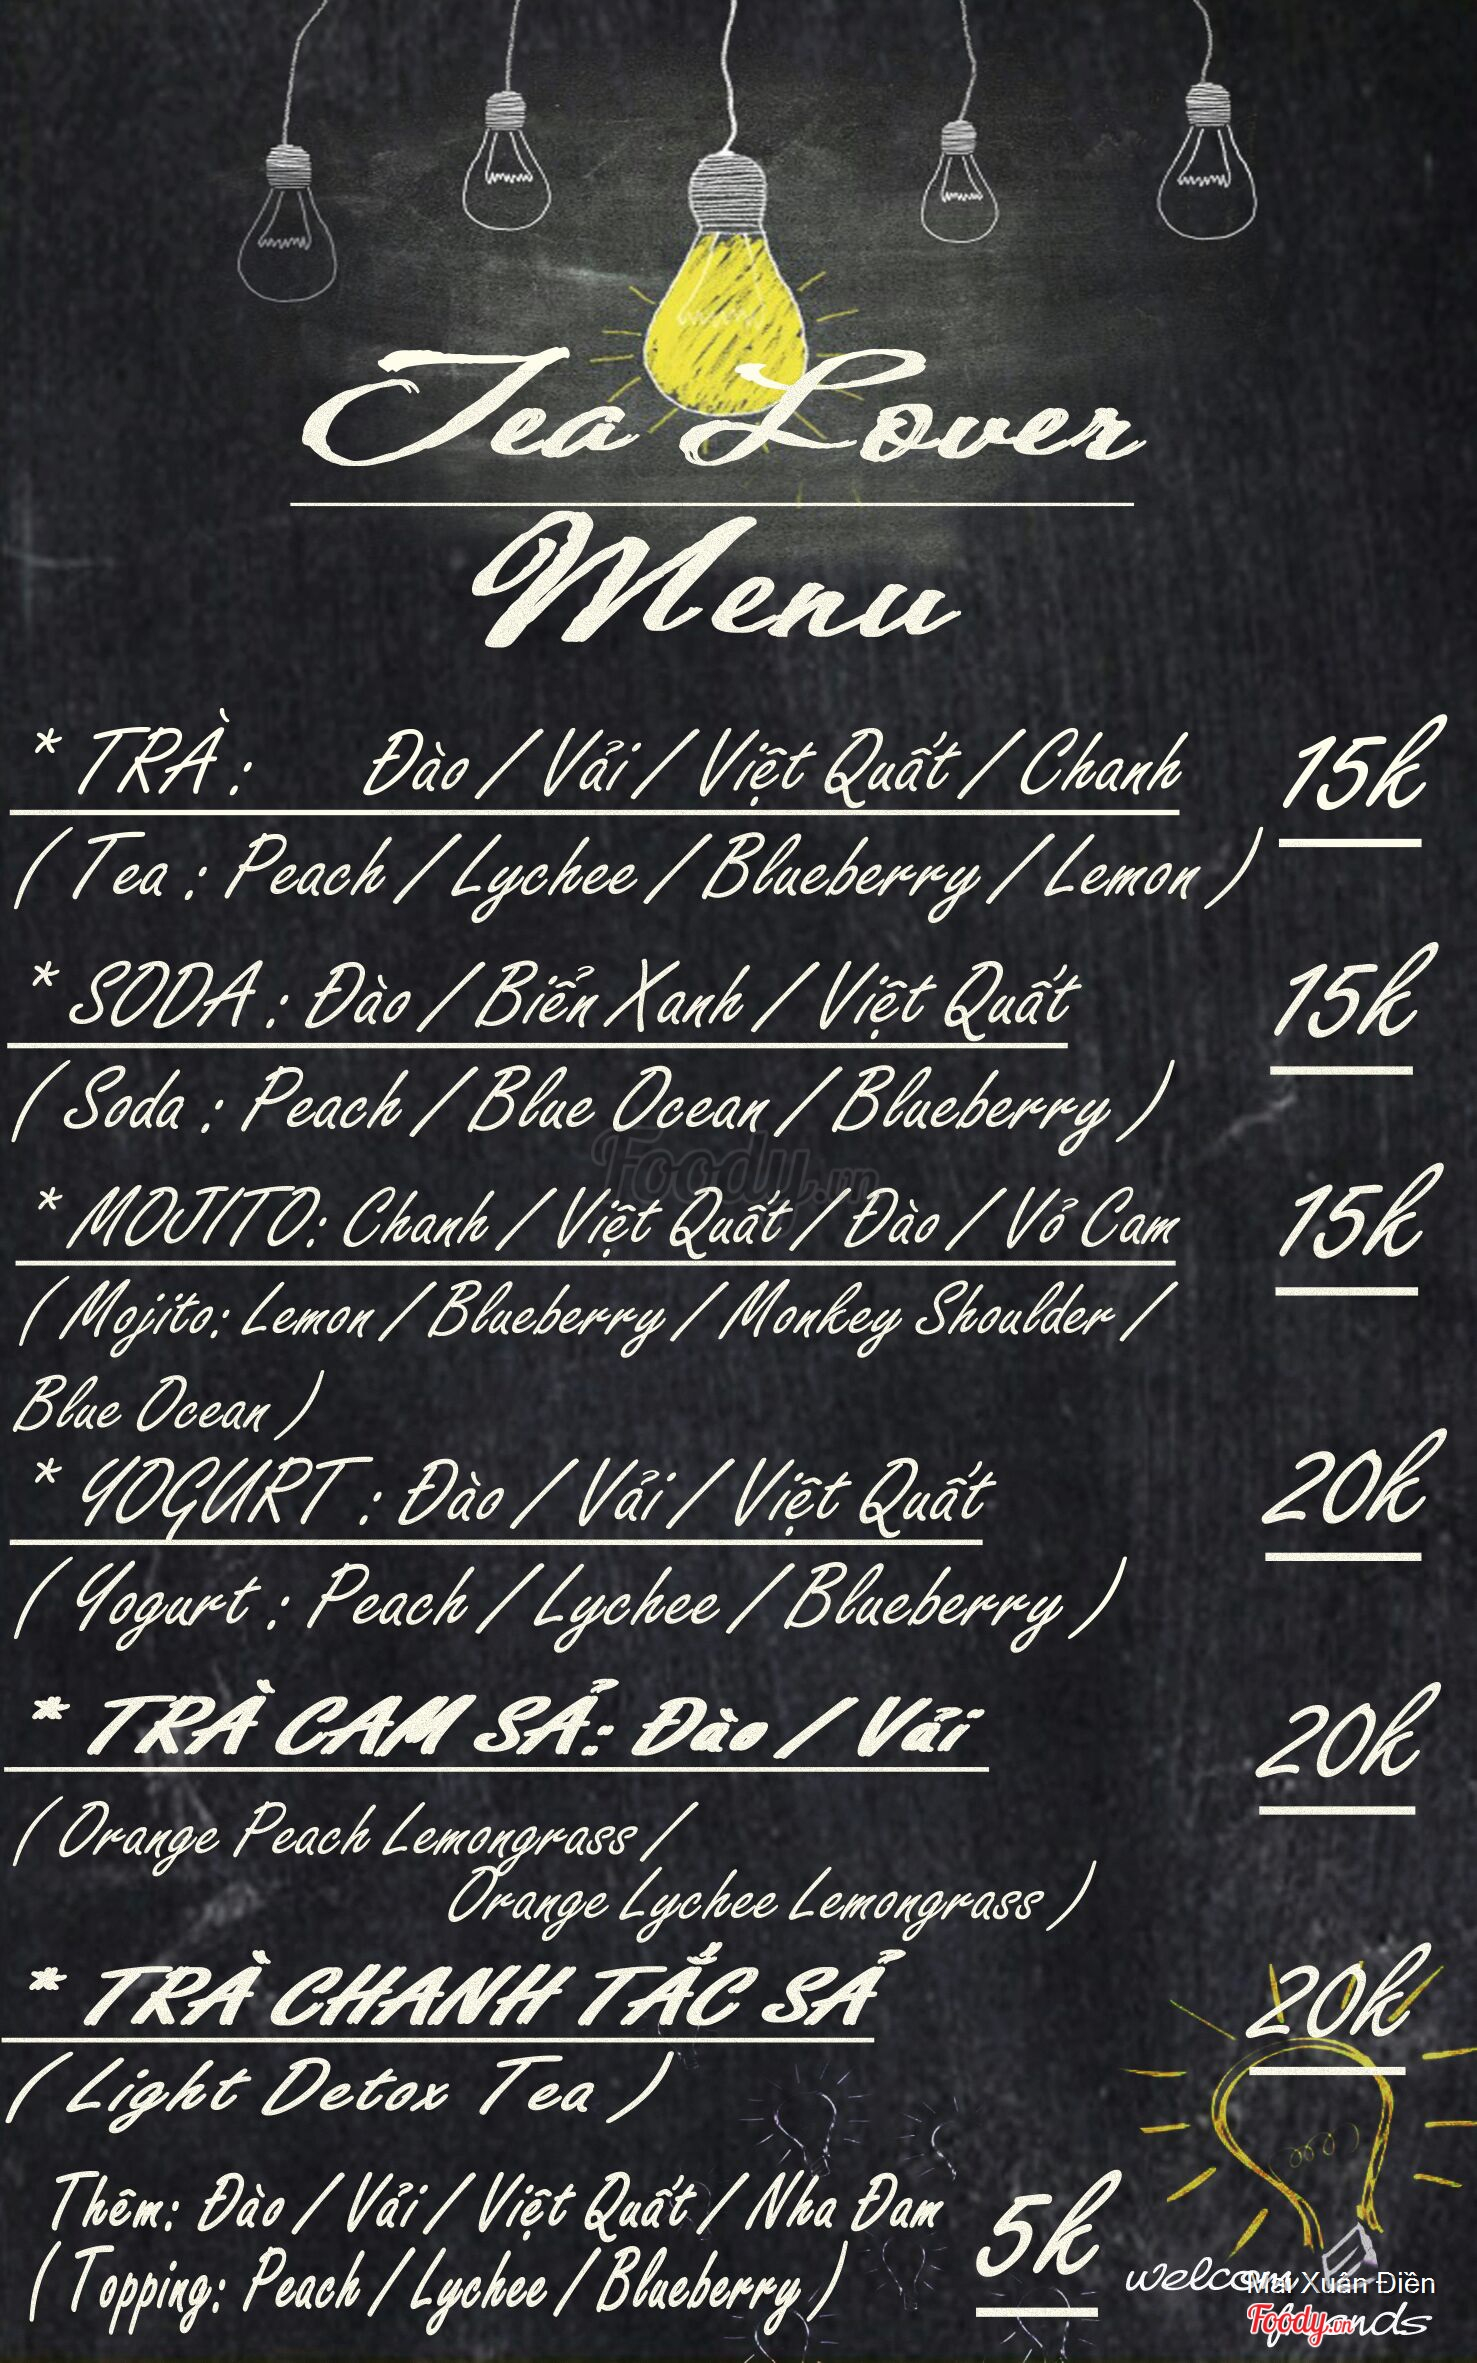 Tea Lover
Menu
* TRÀ : Đào / Vải / Việt Quất / Chanh 15k
( Tea : Peach / Lychee / Blueberry / Lemon )
* SODA : Đào / Biển Xanh / Việt Quất 15k
( Soda : Peach / Blue Ocean / Blueberry )
Foody.vn
* MOJITO: Chanh / Việt Quất / Đào / Vỏ Cam 15k
( Mojito: Lemon / Blueberry / Monkey Shoulder /
Blue Ocean )
* YOGURT : Đào / Vải / Việt Quất 20k
( Yogurt : Peach / Lychee / Blueberry )
* TRÀ CAM SẢ: Đào / Vải 20k
( Orange Peach Lemongrass /
Orange Lychee Lemongrass )
* TRÀ CHANH TẮC SẢ 20k
( Light Detox Tea )
Thêm: Đào / Vải / Việt Quất / Nha Đam 5k
( Topping: Peach / Lychee / Blueberry )
Mai Xuân Điền
Foody.vn